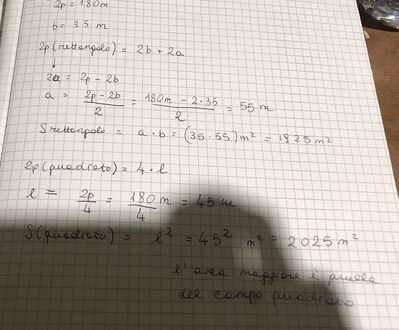 2p = 180 m
b = 35 m
2p (rettangolo) = 2b + 2a
2a = 2p - 2b
a = 2p - 2b / 2 = 180m - 2·35 / 2 = 55 m
S rettangolo = a · b = (35 · 55) m² = 1925 m²
2p (quadrato) = 4 · l
l = 2p / 4 = 180 m / 4 = 45 m
S (quadrato) = l² = 45² m² = 2025 m²
l' area maggiore è quella
del campo quadrato